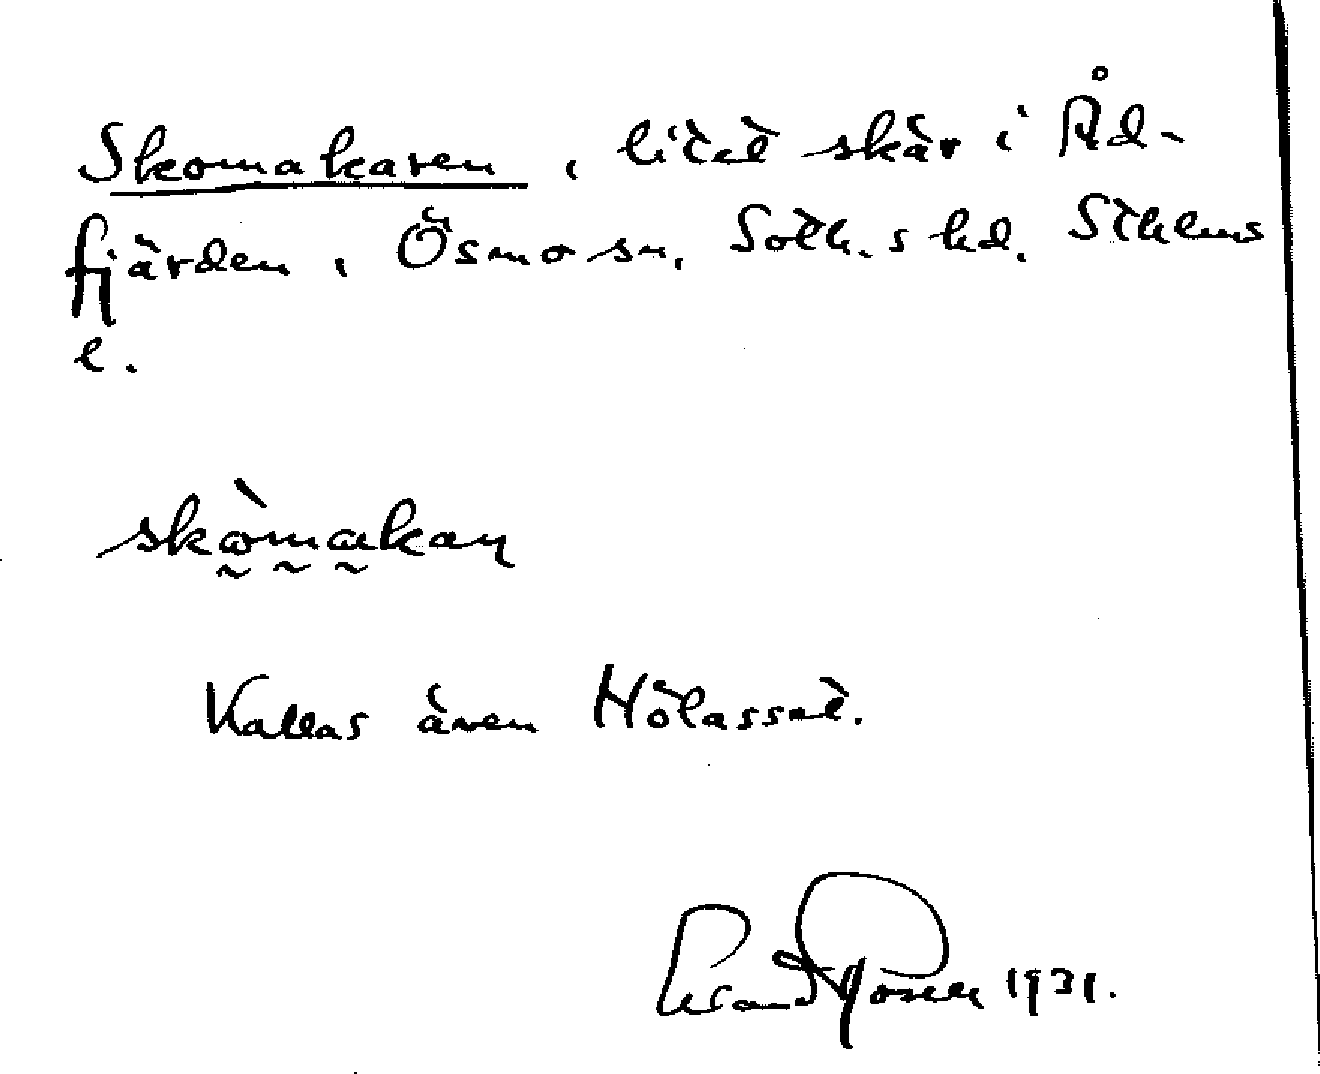 Skomakaren, litet skär i Åd-
fjärden, Ösmo sn, Soth.s hd. Sthlms
l.
skòmakan
Kallas även Hölasset.
1931.